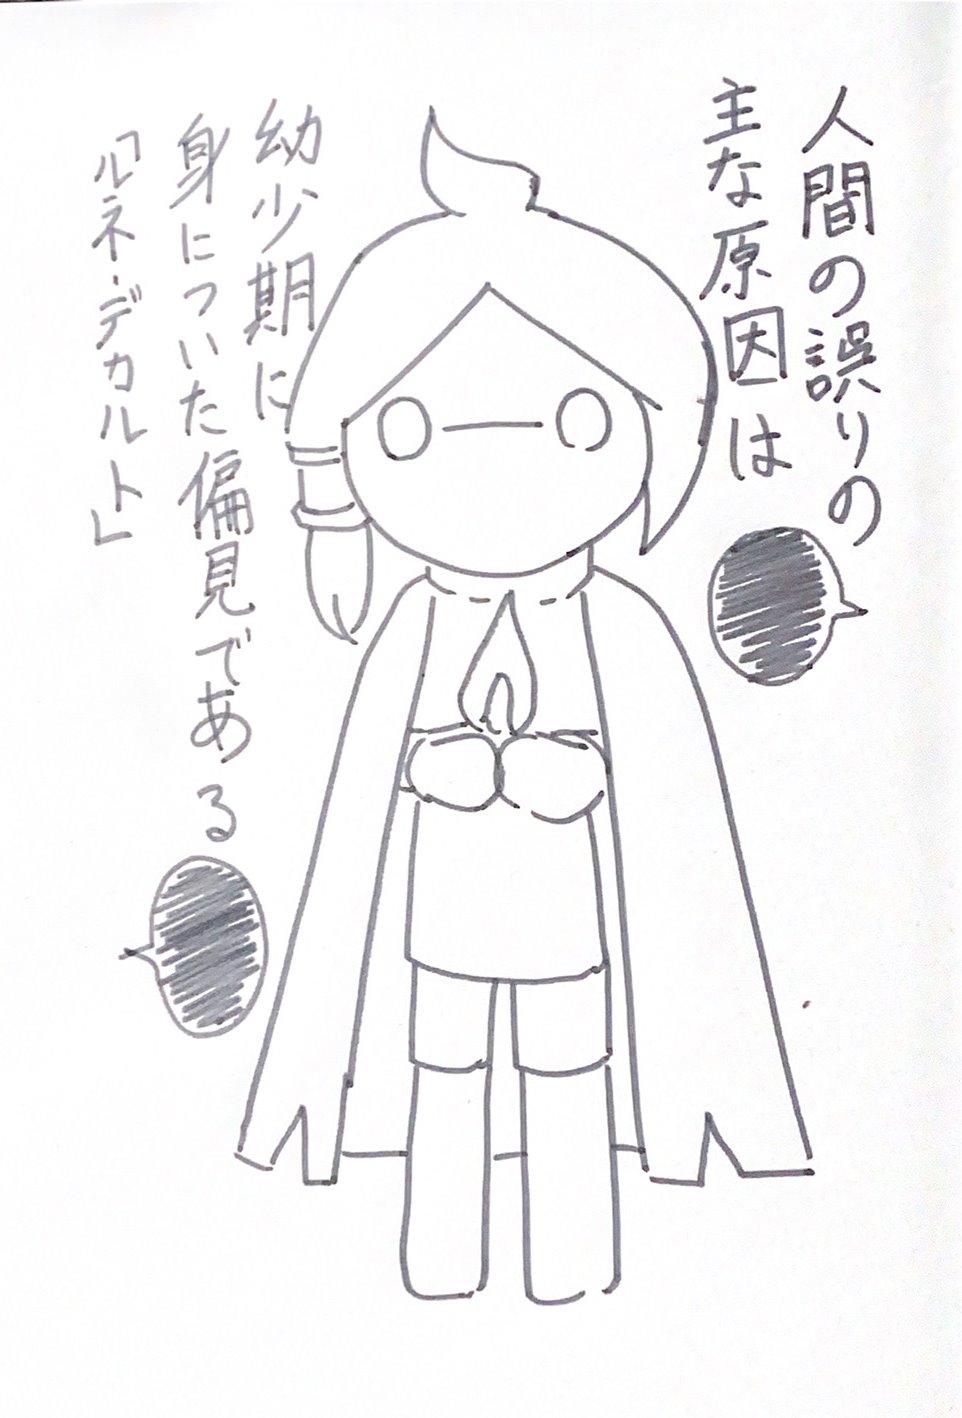 人間の誤りの
主な原因は
幼少期に
身についた偏見である
「ルネ・デカルト」